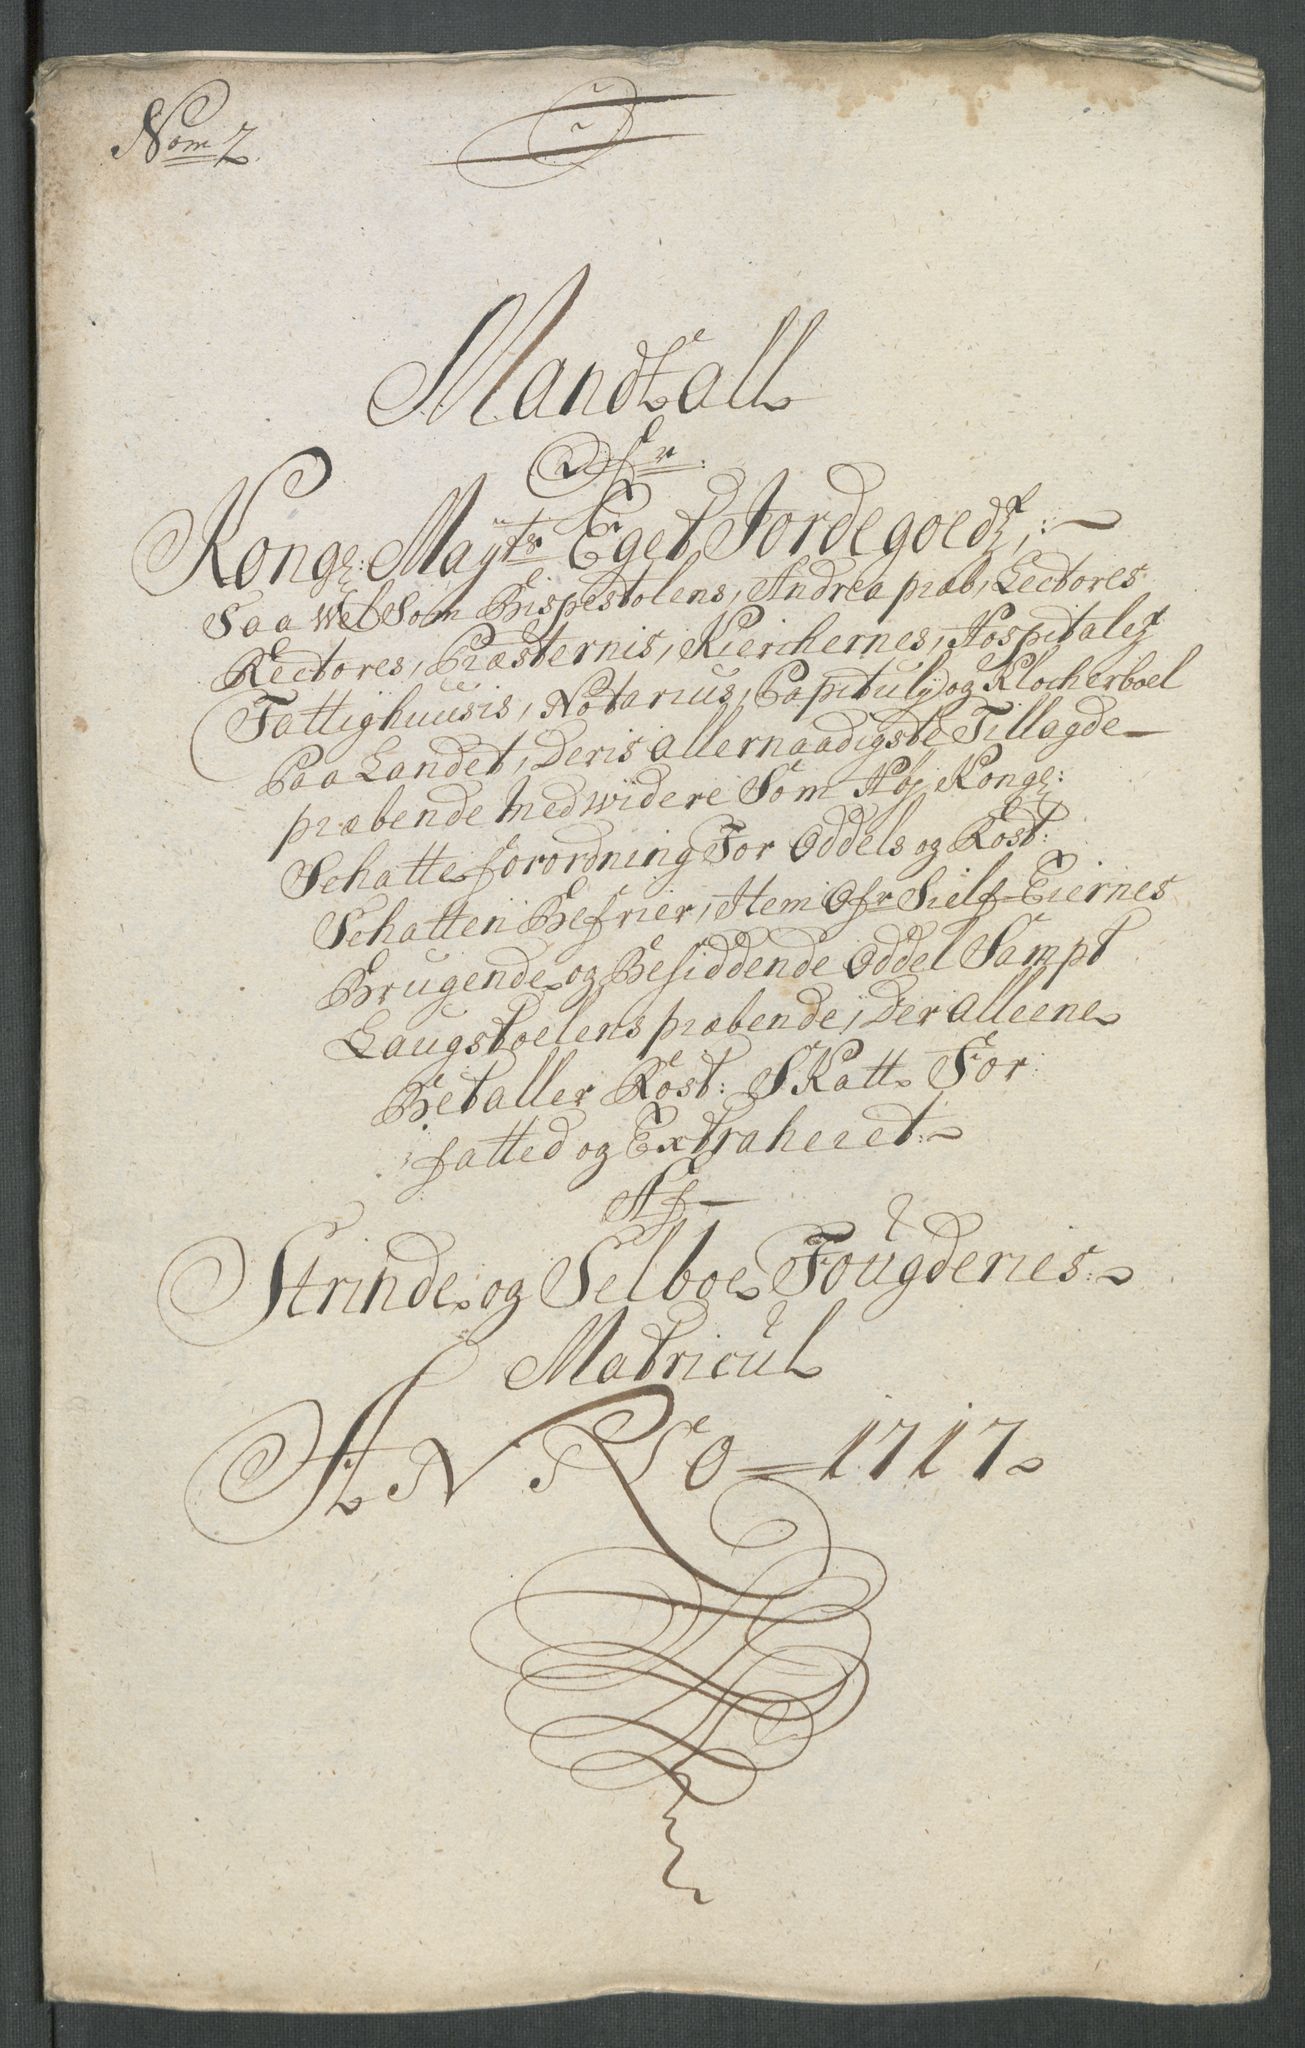 Nom 2
Mandtall
Ofr:
Kongl: Mayts Eget Jordegoedz,:
Saa Wel Som Bispestolens, Andrea præb, Lectores
Rectores, Præsternis, Kierchernes, Hospitalez
Fattighuusis, Notarius, Capituly og Klocherboel
Paa Landet, Deris allernaadigste Tillagde
præbende med widere Som Høj Kongl:
Schatte forordning For Oddels og Rost:
Schatten Befrier, Item Ofr Sielf Eiernes
Brugende og Besiddende Oddel Sampt
Laugstoelens præbende, Der alleene
Betaller Rost: Skatt For
fatted og Extraheret
Af
Strinde og Selboe Fougderies
Matricul
ANNO 1717